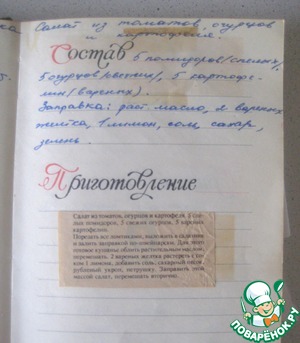 Салат из томатов, огурцов
и картофеля.
Состав 5 помидоров/спелых/,
5 огурцов/свежих/, 5 картофе-
лин/вареных/.
Заправка: раст. масло, 2 вареных
желтка, 1 лимон, соль, сахар,
зелень.
Приготовление
Салат из томатов, огурцов и картофеля. 5 спе-
лых помидоров, 5 свежих огурцов, 5 вареных
картофелин.
Порезать все ломтиками, выложить в салатник
и залить заправкой по-швейцарски. Для этого
готовое кушанье облить растительным маслом,
перемешать. 2 вареных желтка растереть с со-
ком 1 лимона, добавить соль, сахарный песок,
рубленый укроп, петрушку. Заправить этой
массой салат, перемешать вторично.
ПОВАРЁНОК.РУ